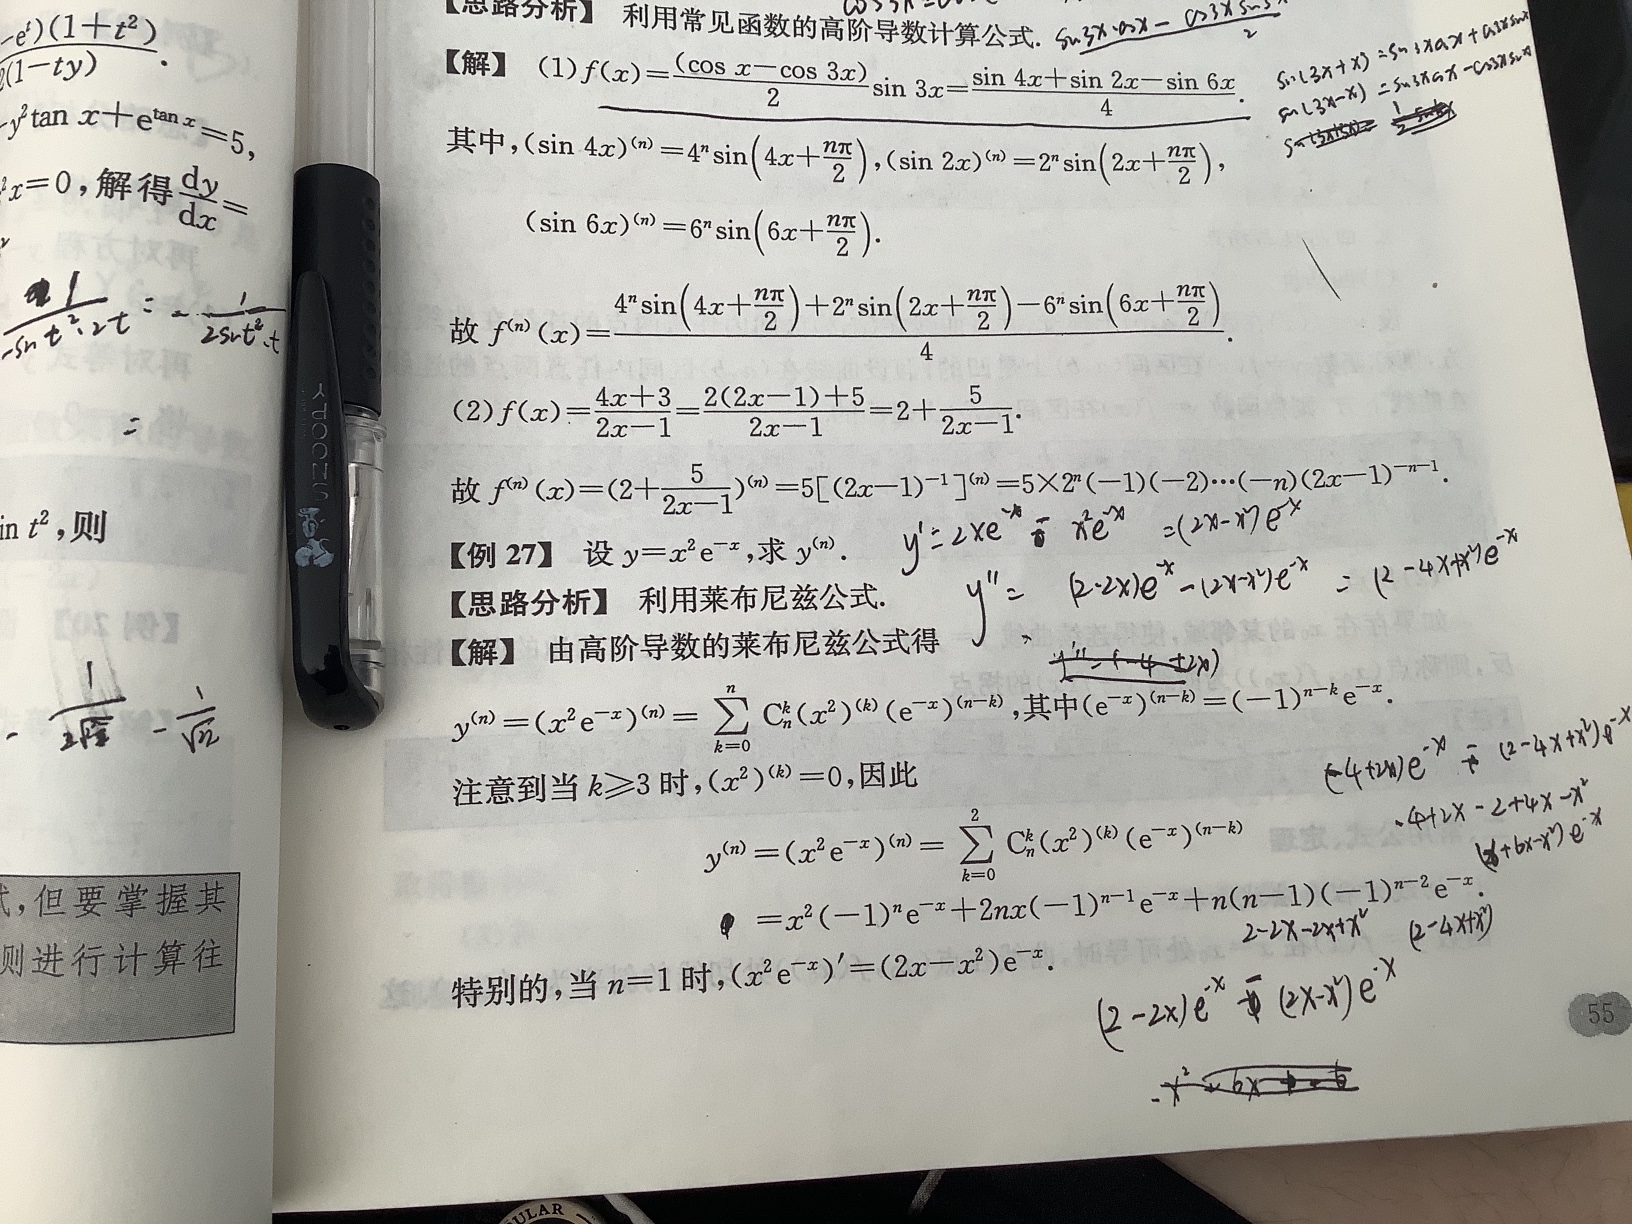 -e^t)(1+t²)
(1-ty)
-y²tan x+e^{tan x}=5,
²x=0,解得dy/dx=
1/(-sin t²·2t) = - 1/(2sin t²·t)
=
in t²,则
- 1/√
式,但要掌握其
则进行计算往
【思路分析】 利用常见函数的高阶导数计算公式.
sin3x·cosx - cos3x sin
2
【解】 (1)f(x)=(cos x-cos 3x)/2 sin 3x=(sin 4x+sin 2x-sin 6x)/4.
sin(3x+x)=sin3xcosx+cos3xsinx
sin(3x-x)=sin3xcosx-cos3xsinx
其中,(sin 4x)^{(n)}=4^n sin(4x+nπ/2),(sin 2x)^{(n)}=2^n sin(2x+nπ/2),
(sin 6x)^{(n)}=6^n sin(6x+nπ/2).
故 f^{(n)}(x)=(4^n sin(4x+nπ/2)+2^n sin(2x+nπ/2)-6^n sin(6x+nπ/2))/4.
(2)f(x)=(4x+3)/(2x-1)=(2(2x-1)+5)/(2x-1)=2+5/(2x-1).
故 f^{(n)}(x)=(2+5/(2x-1))^{(n)}=5[(2x-1)^{-1}]^{(n)}=5×2^n(-1)(-2)…(-n)(2x-1)^{-n-1}.
【例 27】 设 y=x²e^{-x},求 y^{(n)}.
y'=2xe^{-x} - x²e^{-x} =(2x-x²)e^{-x}
【思路分析】 利用莱布尼兹公式.
y''= (2-2x)e^{-x}-(2x-x²)e^{-x} = (2-4x+x²)e^{-x}
【解】 由高阶导数的莱布尼兹公式得
y^{(n)}=(x²e^{-x})^{(n)}=∑_{k=0}^{n} C_n^k(x²)^{(k)}(e^{-x})^{(n-k)},其中(e^{-x})^{(n-k)}=(-1)^{n-k}e^{-x}.
注意到当 k≥3 时,(x²)^{(k)}=0,因此
(-4+2x)e^{-x} - (2-4x+x²)e^{-x}
-4+2x-2+4x-x²
+6x-x²)e^{-x}
y^{(n)}=(x²e^{-x})^{(n)}=∑_{k=0}^{2} C_n^k(x²)^{(k)}(e^{-x})^{(n-k)}
=x²(-1)^n e^{-x}+2nx(-1)^{n-1}e^{-x}+n(n-1)(-1)^{n-2}e^{-x}.
2-2x-2x+x² (2-4x+x²)
特别的,当 n=1 时,(x²e^{-x})'=(2x-x²)e^{-x}.
(2-2x)e^{-x} - (2x-x²)e^{-x}
55
SNOOPY